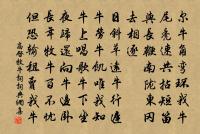 尔牛角彎環我牛
尾禿速共拈短笛
與長鞭南隴東岡
去相逐
日斜草遠牛行遲
牛勞牛飢惟我知
牛上唱歌牛下坐
夜歸還向牛邊臥
長年牧牛百不憂
但恐輸租賣我牛
高啓牧牛詞詞典網書